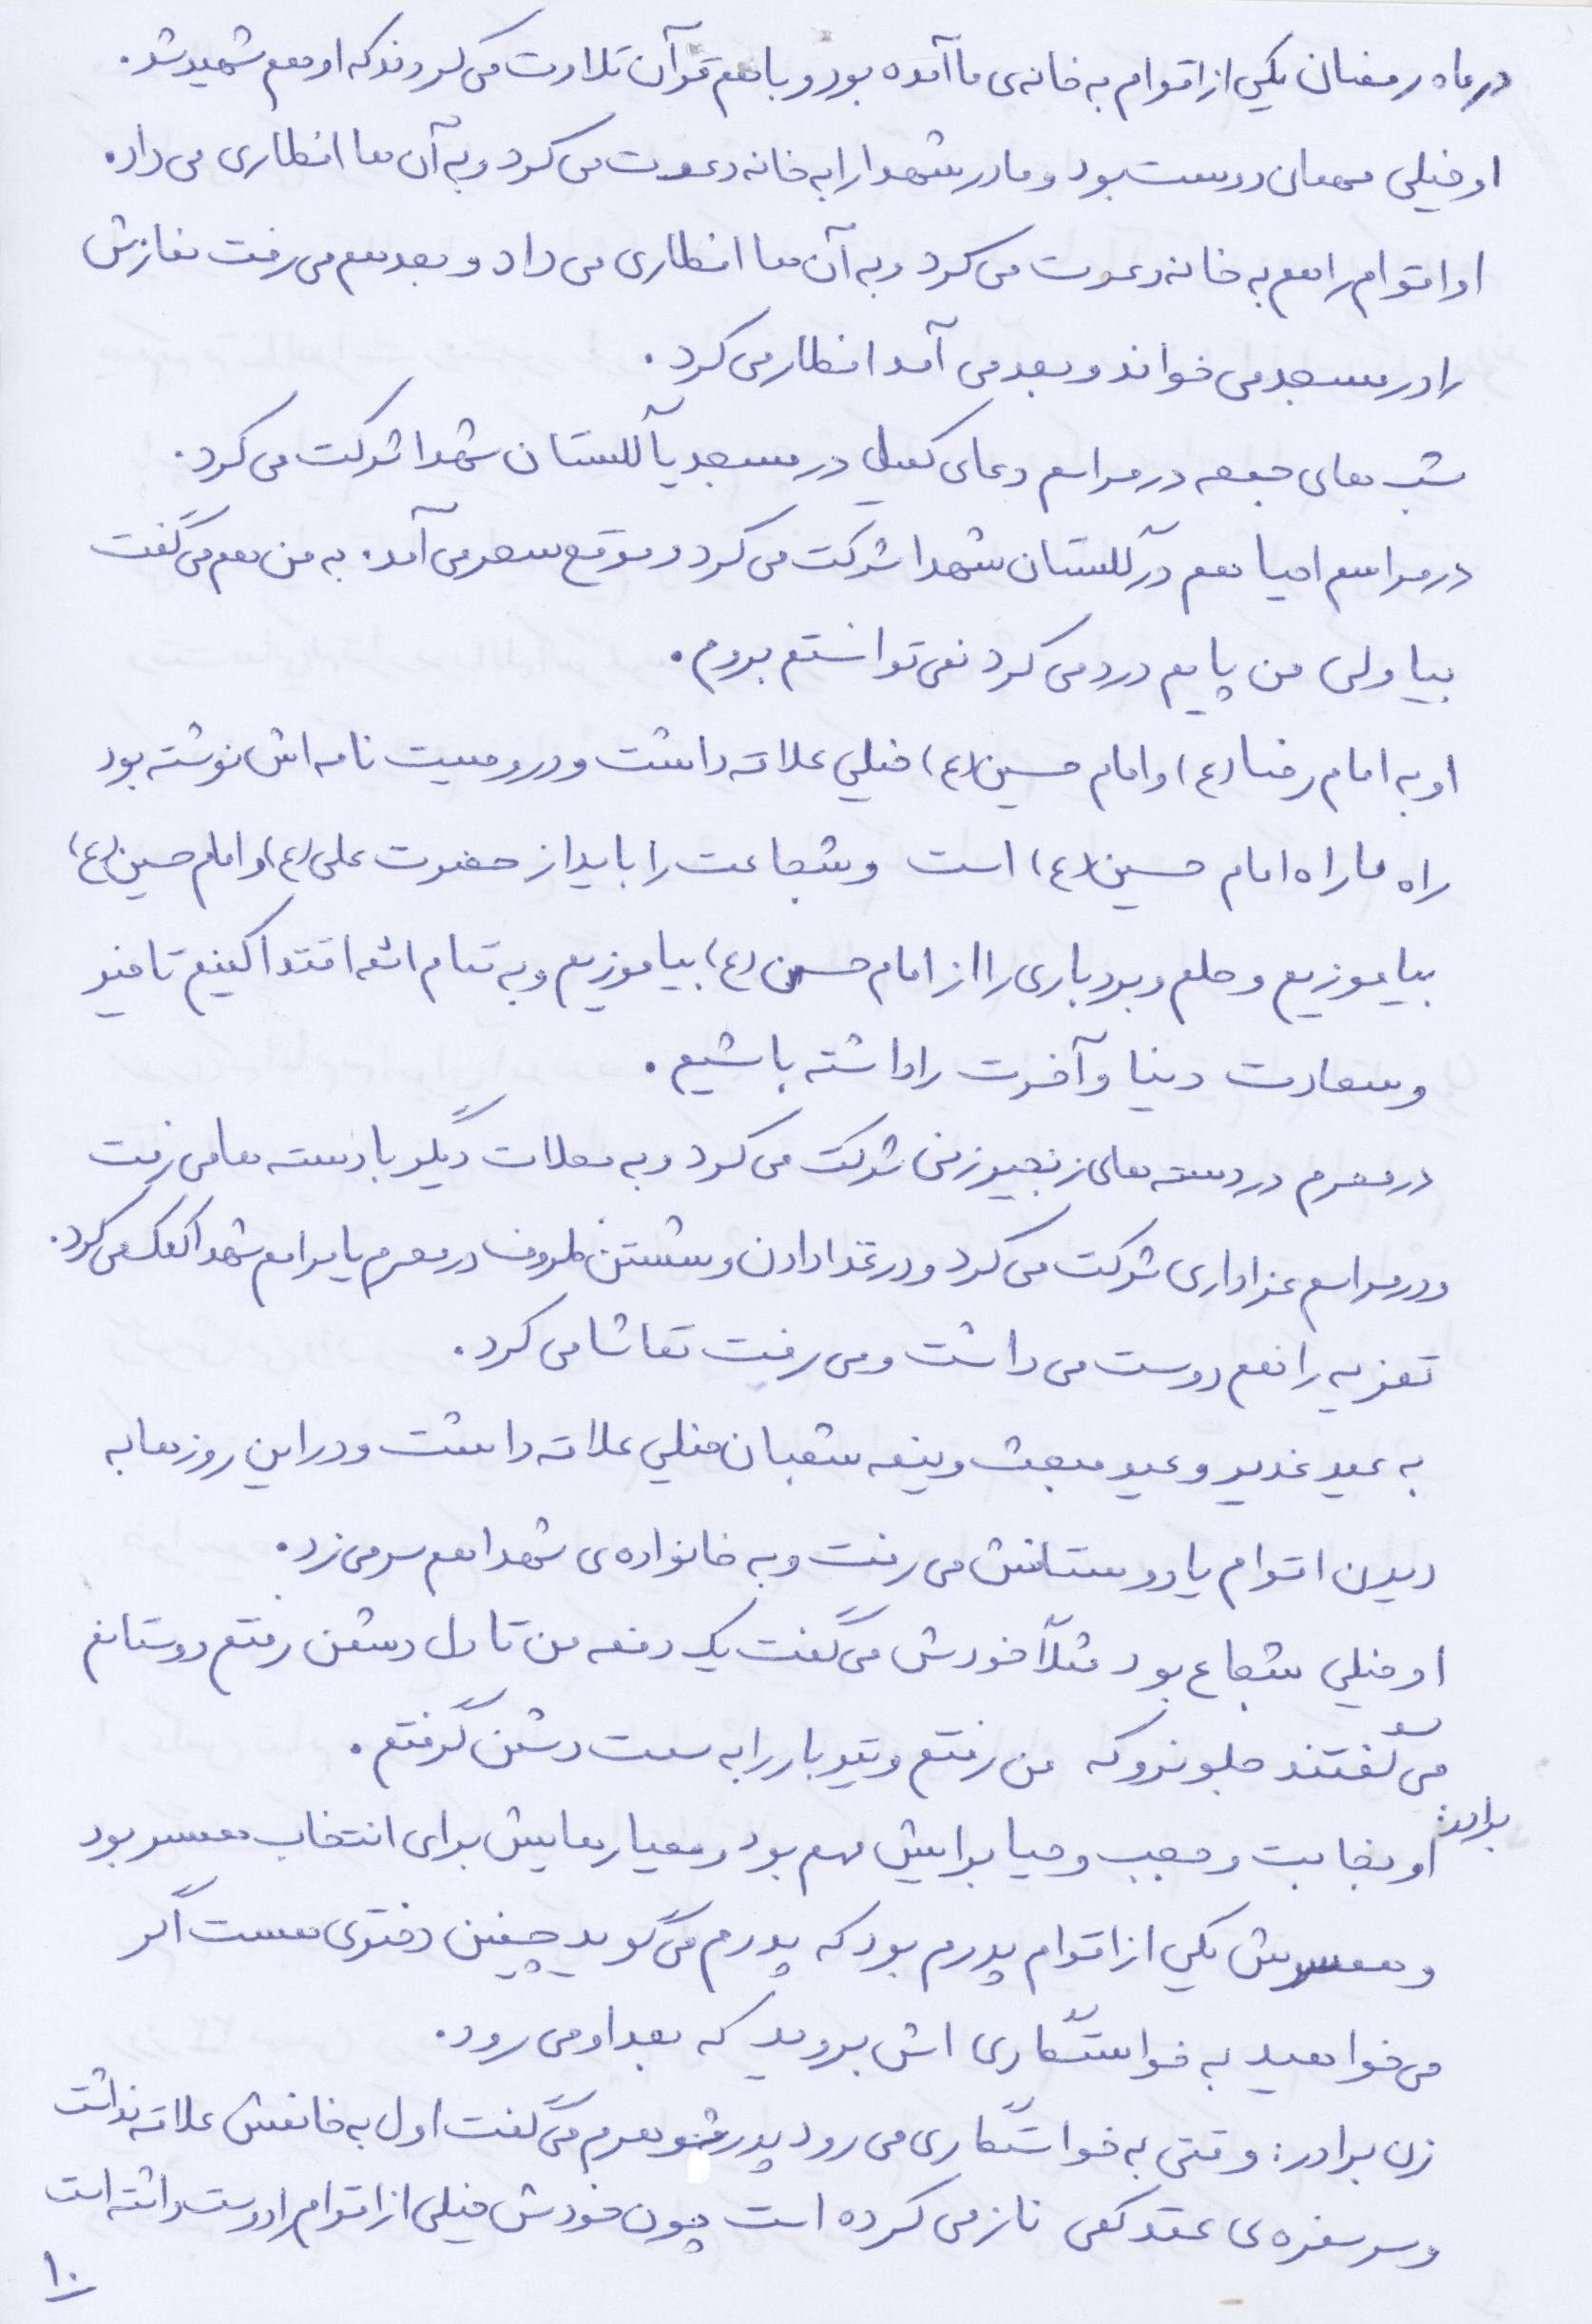 در ماه رمضان یکی از اقوام به خانه‌ی ما آمده بود و با هم قرآن تلاوت می‌کردند که او هم شهید شد.
او خیلی مهمان دوست بود و مادر شهدا را به خانه دعوت می‌کرد و به آن ها افطاری می‌داد.
او اقوام را هم به خانه دعوت می‌کرد و به آن ها افطاری می‌داد و بعد هم می‌رفت نمازش
را در مسجد می‌خواند و بعد می‌آمد افطار می‌کرد.
شب های جمعه در مراسم دعای کمیل در مسجد یا گلستان شهدا شرکت می‌کرد.
در مراسم احیا هم در گلستان شهدا شرکت می‌کرد و موقع سحر می‌آمد. به من هم می‌گفت
بیا ولی من پایم درد می‌کرد نمی‌توانستم بروم.
او به امام رضا (ع) و امام حسین (ع) خیلی علاقه داشت و در وصیت نامه اش نوشته بود
راه ما راه امام حسین (ع) است و شجاعت را باید از حضرت علی (ع) و امام حسین (ع)
بیاموزیم و حلم و بردباری را از امام حسن (ع) بیاموزیم و به تمام ائمه اقتدا کنیم تا خیر
و سعادت دنیا و آخرت را داشته باشیم.
در محرم در دسته های زنجیر زنی شرکت می‌کرد و به محلات دیگر با دسته ها می‌رفت
و در مراسم عزاداری شرکت می‌کرد و در غذا دادن و شستن ظروف در محرم یا مراسم شهدا کمک می‌کرد.
تعزیه را هم دوست می‌داشت و می‌رفت تماشا می‌کرد.
به عید غدیر و عید مبعث و نیمه شعبان خیلی علاقه داشت و در این روزها به
دیدن اقوام یا دوستانش می‌رفت و به خانواده‌ی شهدا هم سر می‌زد.
او خیلی شجاع بود مثلاً خودش می‌گفت یک دفعه من تا دل دشمن رفتم دوستانم
می‌گفتند جلو نرو که من رفتم و تیربار را به سمت دشمن گرفتم.
برادر: او نجابت و حجب و حیا برایش مهم بود و معیارهایش برای انتخاب همسر بود
و همسرش یکی از اقوام پدرم بود که پدرم می‌گوید چنین دختری هست اگر
می‌خواهید به خواستگاری اش بروید که بعد او می‌رود.
زن برادر: وقتی به خواستگاری می‌رود پدر شوهرم می‌گفت اول به خانمش علاقه نداشت
و سر سفره‌ی عقد کمی ناز می‌کرده است چون خودش خیلی از اقوام را دوست داشته است
۱۰